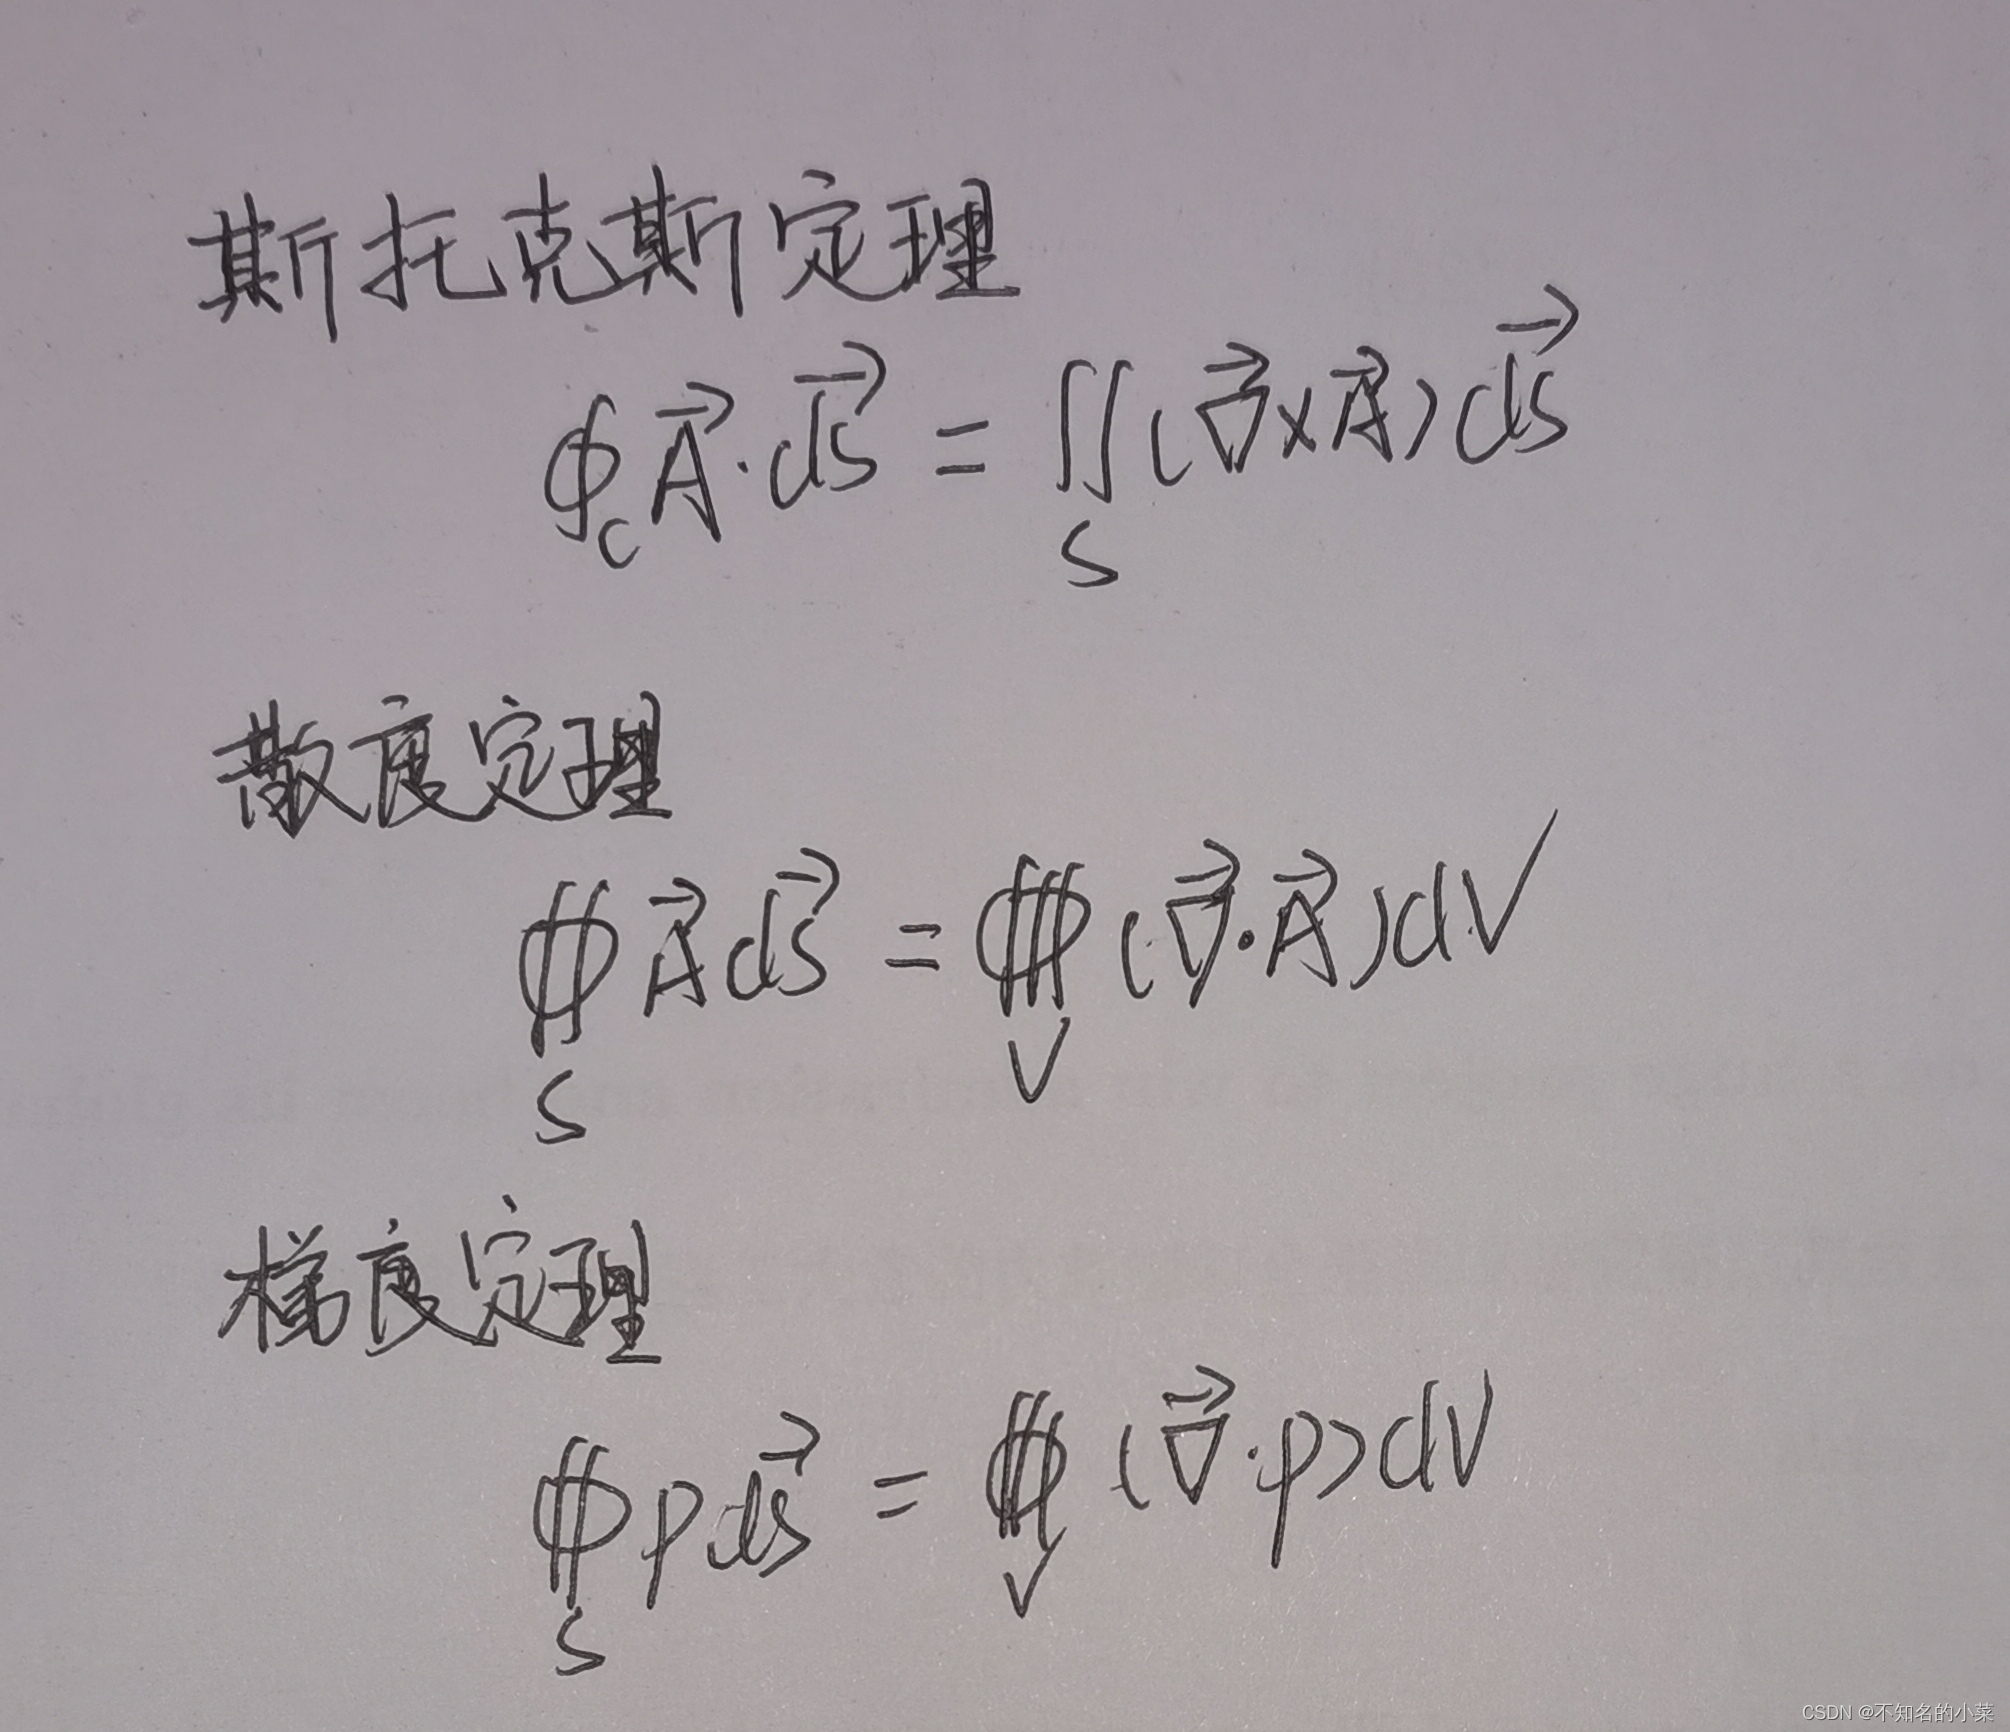 斯托克斯定理
∮_C \vec{A}·\vec{ds} = ∬_S (\vec{∇}×\vec{A}) \vec{ds}
散度定理
∯_S \vec{A} \vec{ds} = ∰_V (\vec{∇}·\vec{A}) dV
梯度定理
∯_S p \vec{ds} = ∰_V (\vec{∇}·p) dV
CSDN @不知名的小菜